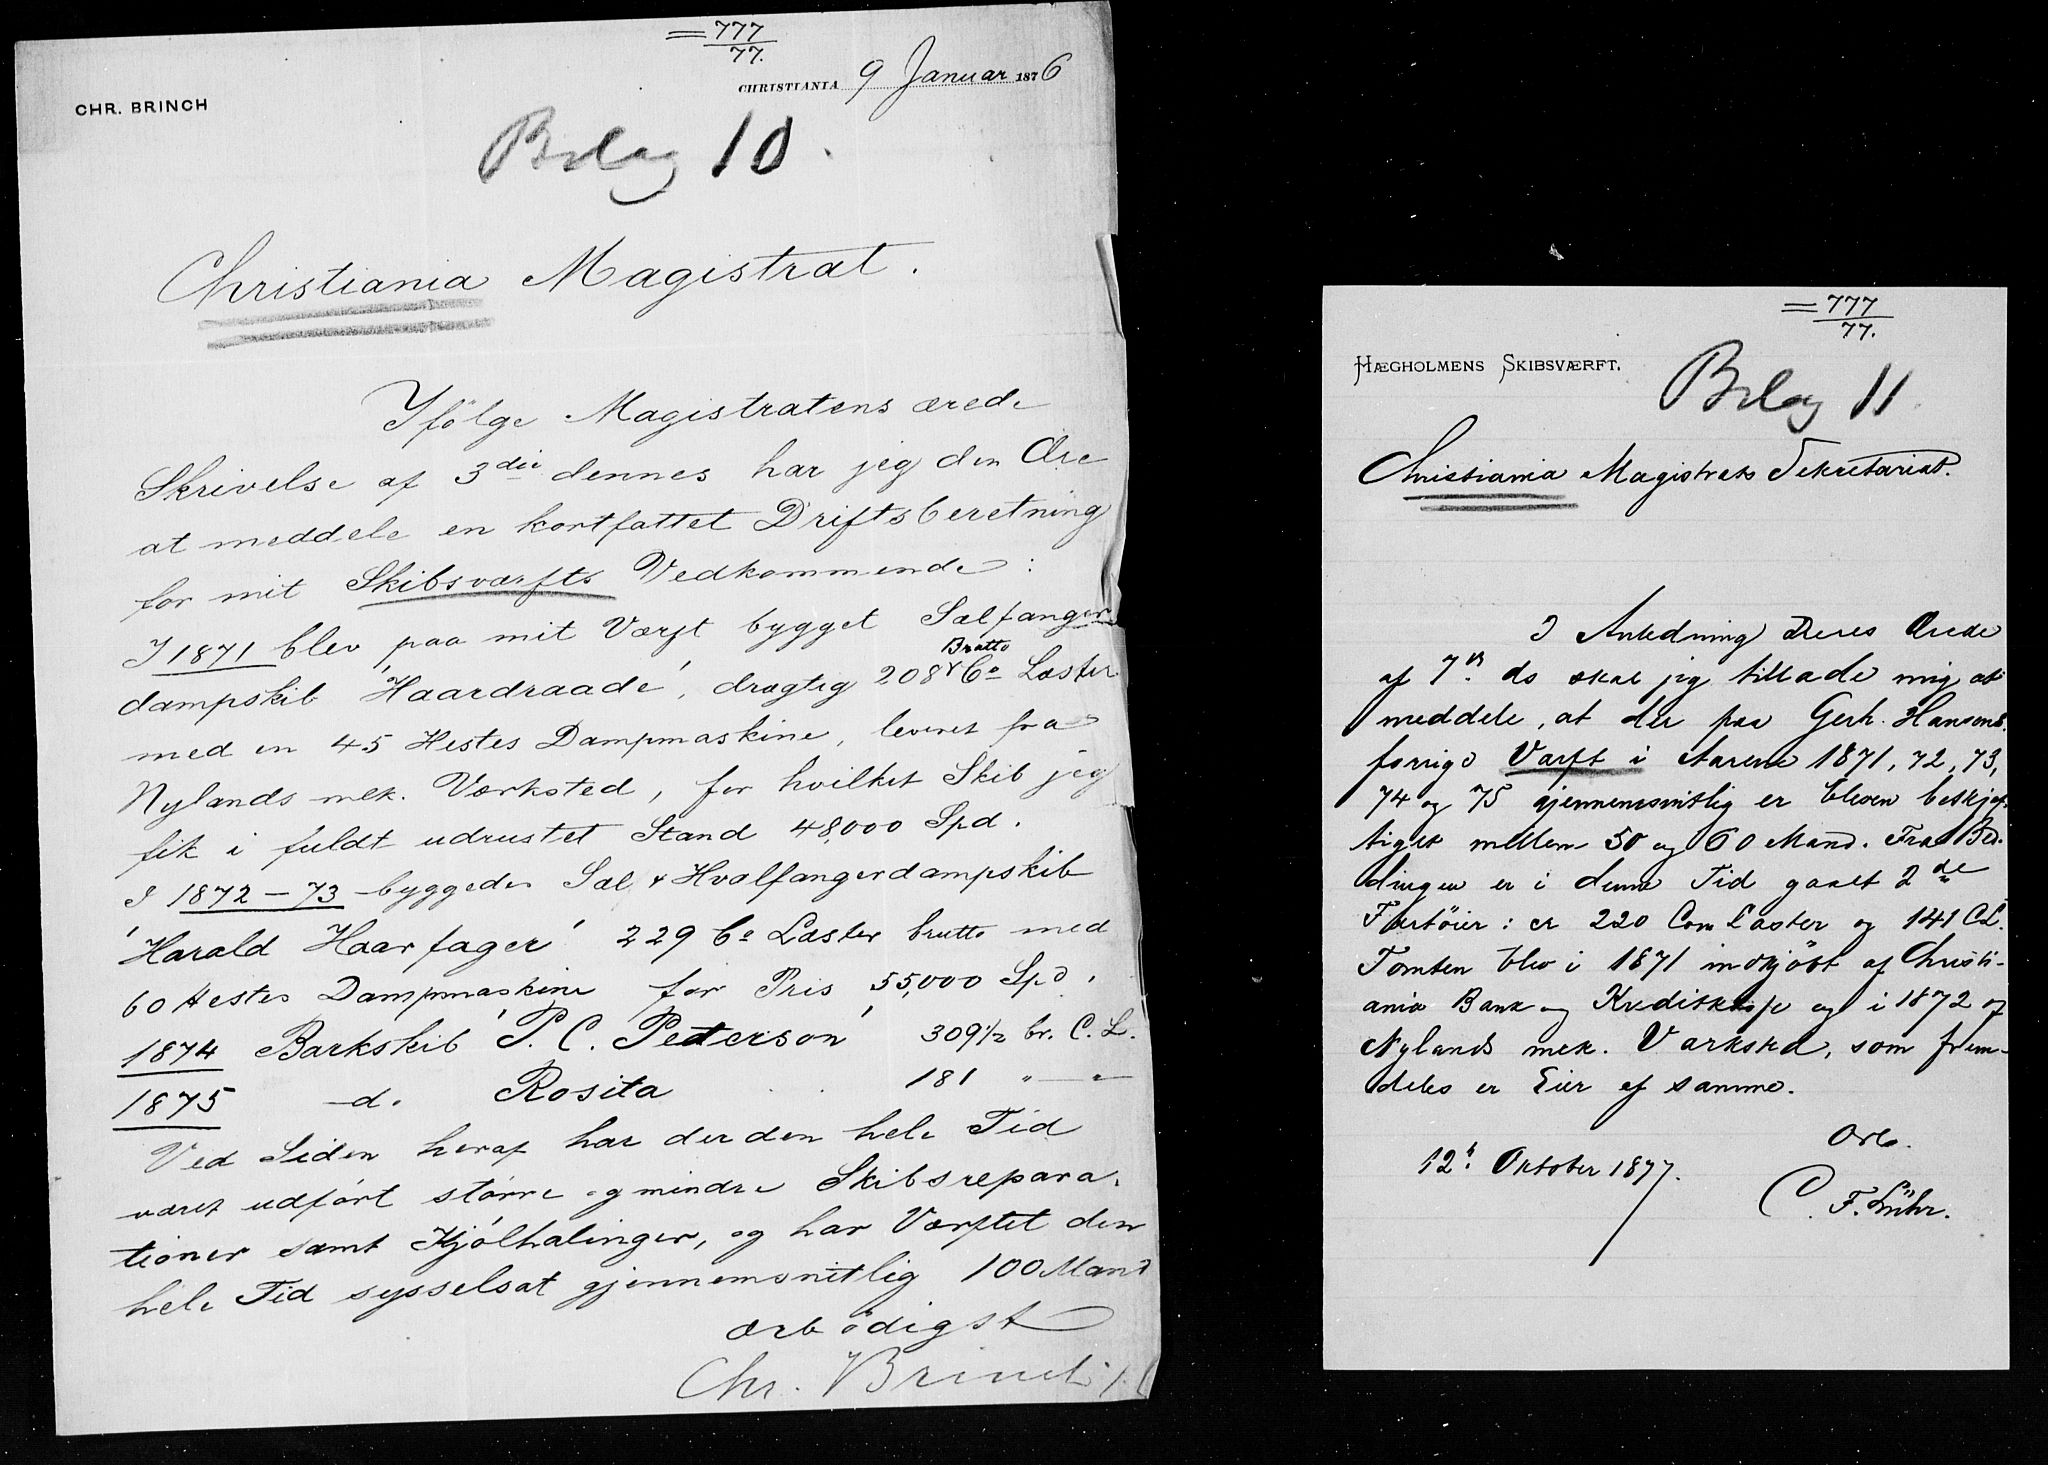 = 777
77.
CHR. BRINCH
CHRISTIANIA 9 Januar 1876
Bilag 10.
Christiania Magistrat.
Ifölge Magistratens ærede
Skrivelse af 3die dennes har jeg den Ære
at meddele en kortfattet Driftsberetning
for mit Skibsværfts Vedkommende:
I 1871 blev paa mit Værft bygget Sælfanger
Brutto
dampskib 'Haardraade', drægtig 208 Co Læster
med en 45 Hestes Dampmaskine, leveret fra
Nylands mek. Værksted, for hvilket Skib jeg
fik i fuldt udrustet Stand 48,000 Spd.
I 1872-73 byggedes Sæl & Hvalfangerdampskib
'Harald Haarfager' 229 Co Læster brutto med
60 Hestes Dampmaskine for Pris 55,000 Spd.
1874 Barkskib 'P. C. Peterson' 309½ br. C. L.
1875 -d. Rosita 181 " — "
Ved Siden heraf har der den hele Tid
været udført større og mindre Skibsrepara-
tioner samt Kjølhalinger, og har Værftet den
hele Tid sysselsat gjennemsnitlig 100 Mand
Ærbödigst
Chr. Brinch
= 777
77.
HÆGHOLMENS SKIBSVÆRFT.
Bilag 11
Christiania Magistrats Sekretariat.
I Anledning Deres Ærede
af 7de ds skal jeg tillade mig at
meddele, at der paa Gerh. Hansens
forrige Værft i Aarene 1871, 72, 73,
74 og 75 gjennemsnitlig er bleven beskjæf-
tiget mellem 50 og 60 Mand. Fra Bed-
dingen er i denne Tid gaaet 2de
Fartöier: er 220 Com Læster og 141 C.L.
Tomten blev i 1871 indkjöbt af Christi-
ania Bank og Kreditkasse og i 1872 af
Nylands mek. Værksted, som frem-
deles er Eier af samme.
Ærb.
12te Oktober 1877.
C. F. Lühr.